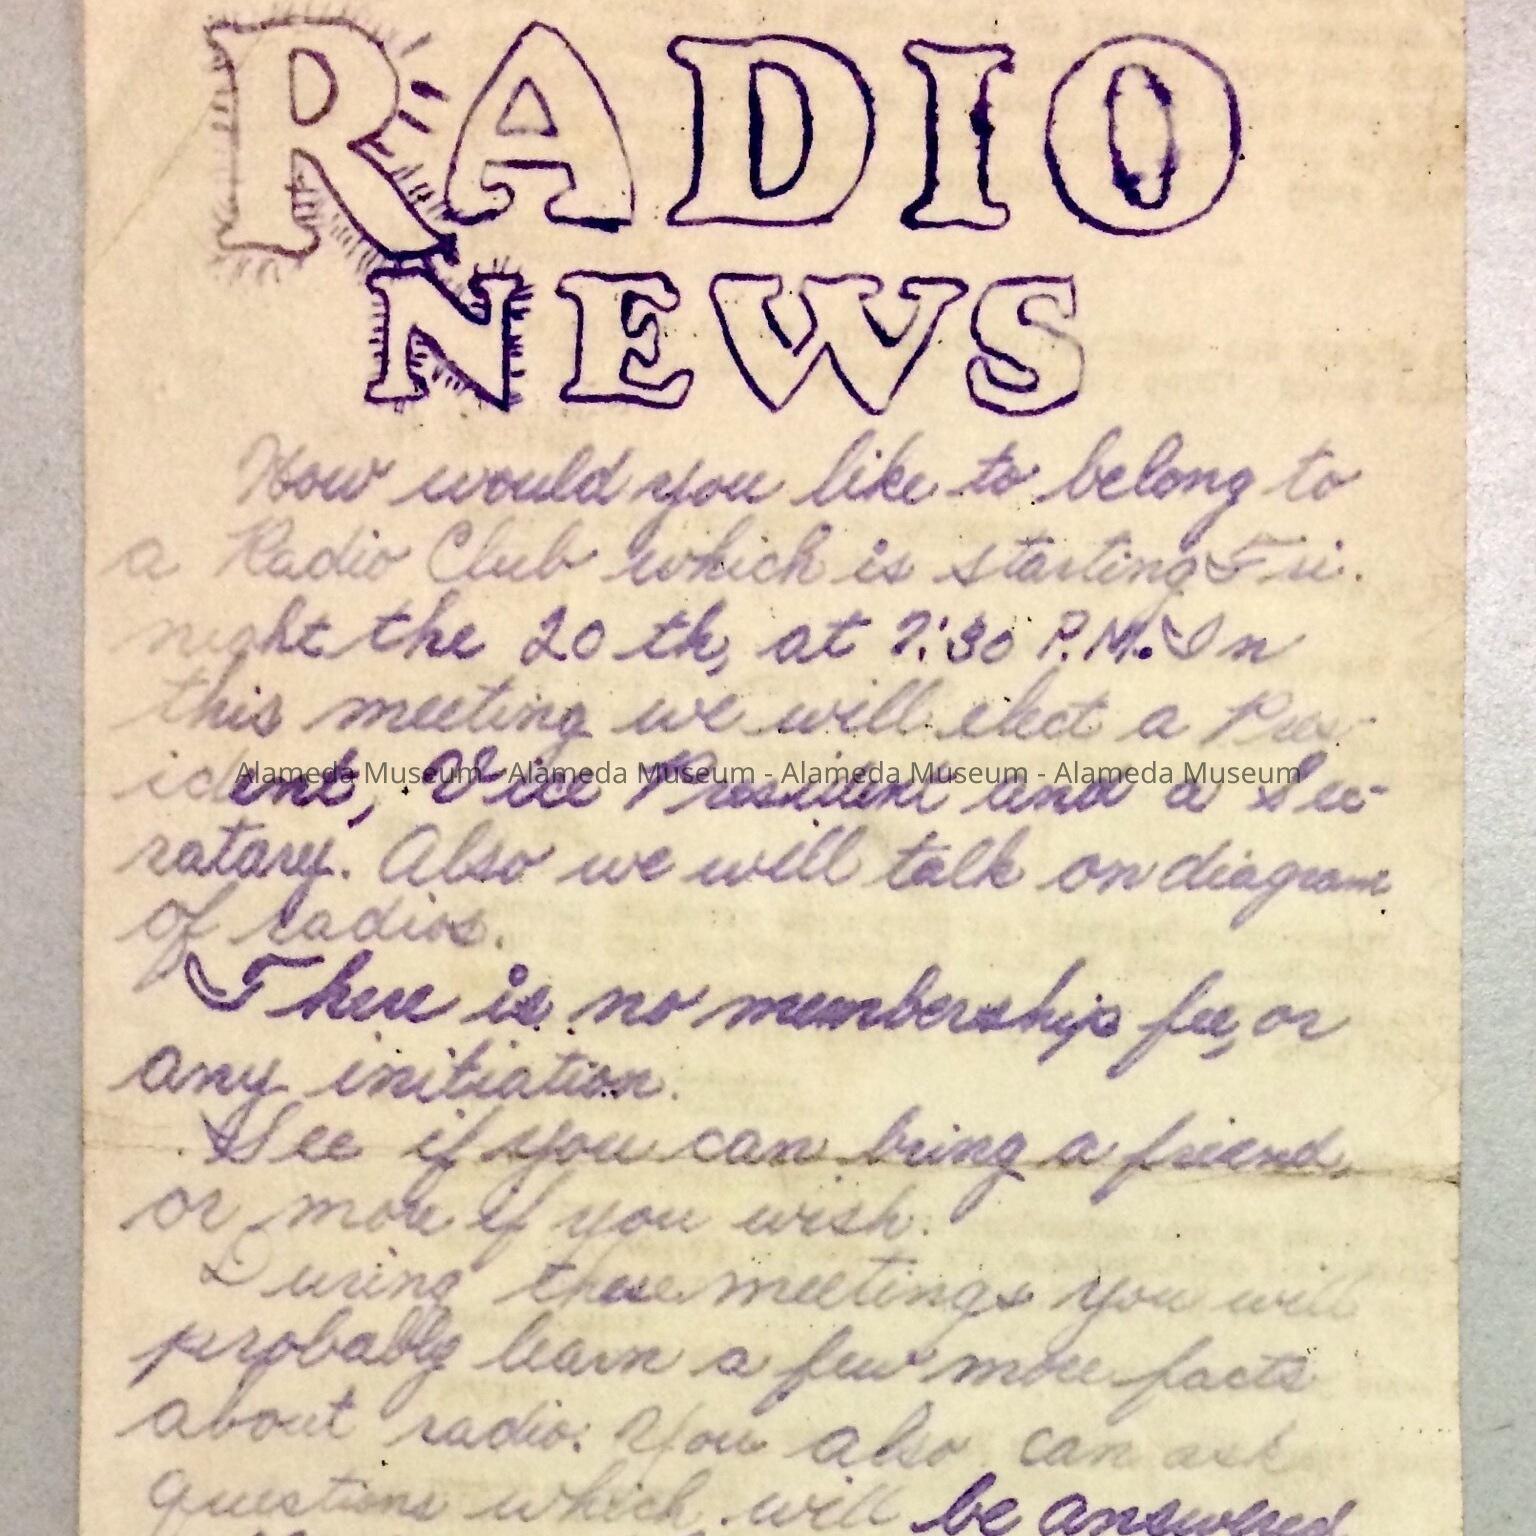 RADIO
NEWS
How would you like to belong to
a Radio Club which is starting Fri.
night the 20 th, at 7:30 P.M. In
this meeting we will elect a Pres-
ident, Vice President and a Sec-
Alameda Museum - Alameda Museum - Alameda Museum - Alameda Museum
ratary. Also we will talk on diagram
of radios.
There is no membership fee, or
any initiation.
See if you can bring a friend,
or more if you wish.
During these meetings you will
probably learn a few more facts
about radio. You also can ask
questions which will be answered